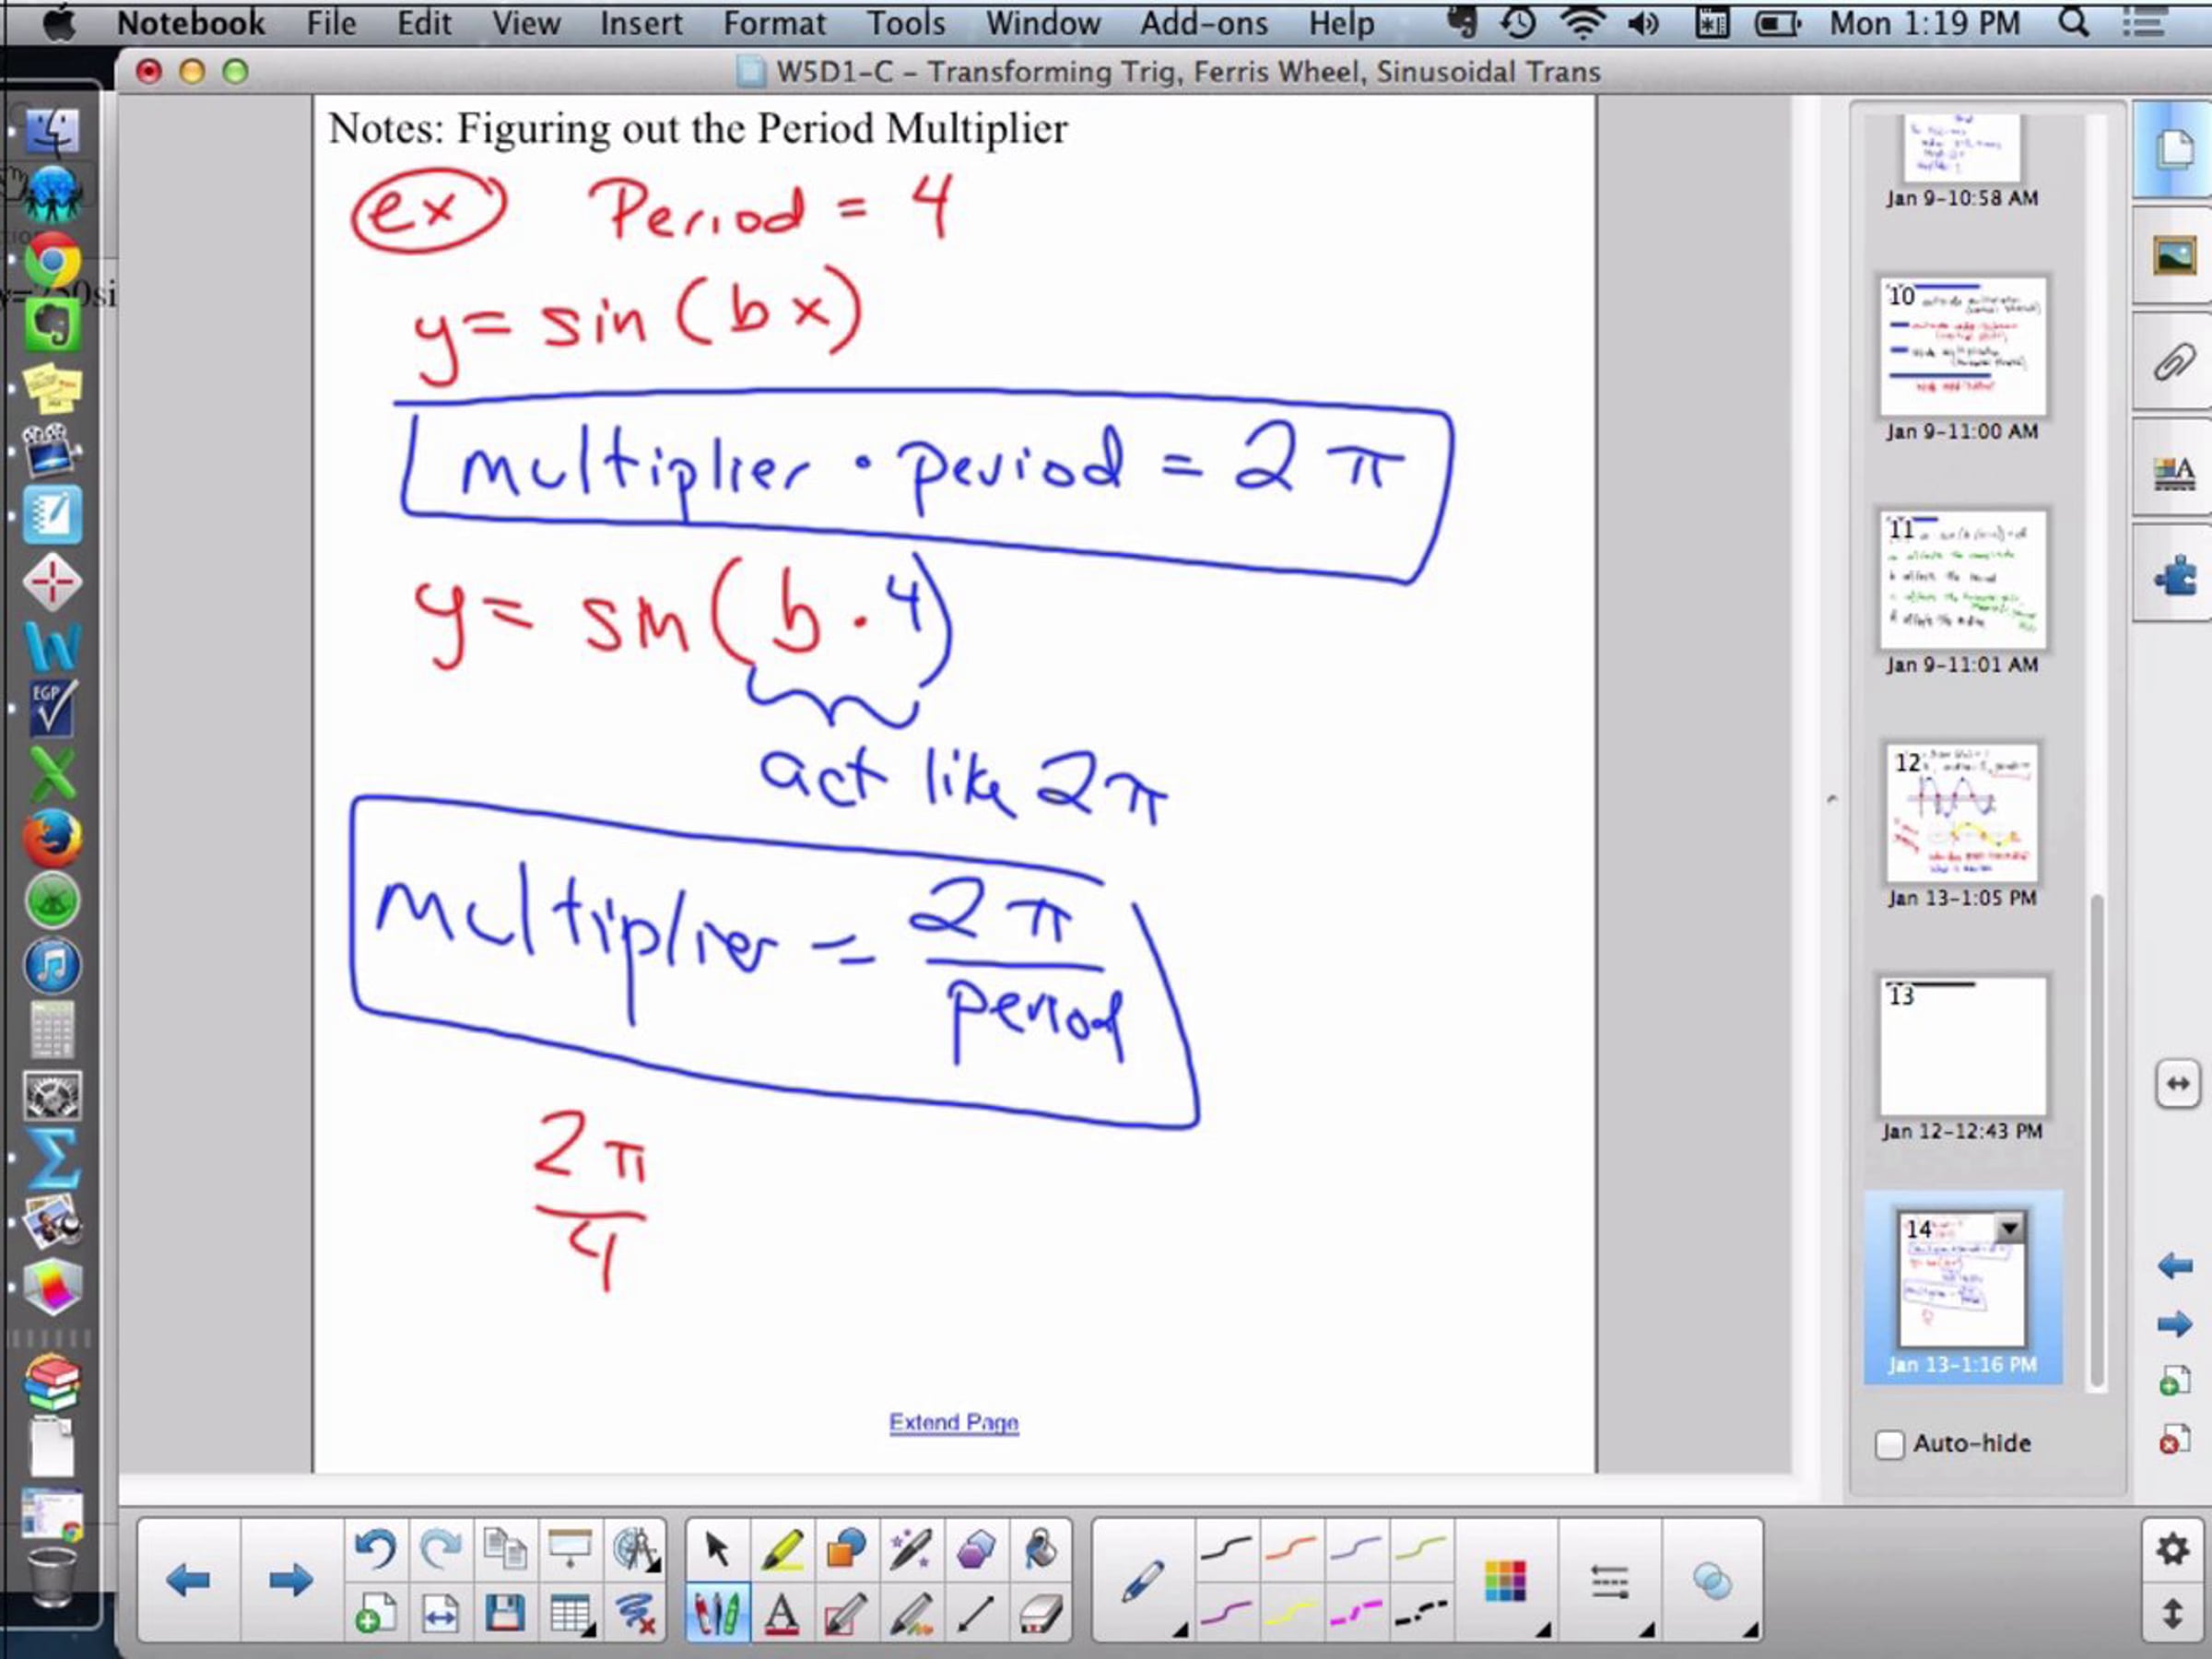 Notebook File Edit View Insert Format Tools Window Add-ons Help Mon 1:19 PM
W5D1-C – Transforming Trig, Ferris Wheel, Sinusoidal Trans
Notes: Figuring out the Period Multiplier
ex Period = 4
y = sin (bx)
multiplier · period = 2π
y = sin (b · 4)
act like 2π
multiplier = 2π
period
2π
4
Extend Page
Jan 9-10:58 AM
10
Jan 9-11:00 AM
11
Jan 9-11:01 AM
12
Jan 13-1:05 PM
13
Jan 12-12:43 PM
14
Jan 13-1:16 PM
Auto-hide
EGP